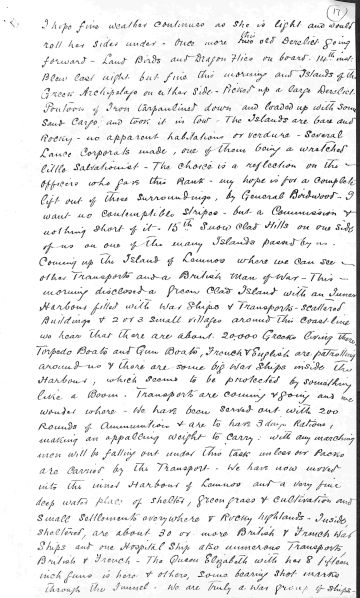 17
I hope fine weather continues as she is light and would
roll her sides under - Once more this fine old Derelict going
forward - Land Birds and Dragon Flies on board. 14th inst.
Blew last night but fine this morning and Islands of the
Greek Archipelago on either side - Picked up a large Derelict
Pontoon of Iron tarpaulined down and loaded up with some
Sand Cargo and took it in tow - The Islands are bare and
Rocky - no apparent habitations or verdure - Several
Lance Corporals made, one of them being a wretched
little Salvationist - The choice is a reflection on the
officers who gave this Rank - my hope is for a complete
lift out of these surroundings, by General Birdwood - I
want no Contemptible stripes - but a Commission &
nothing short of it - 15th Snow Clad Hills on one side
of us on one of the many Islands passed by us.
Coming up the Island of Lemnos where we can see
other Transports and a British Man of War - This
morning disclosed a green Clad Island with an Inner
Harbour filled with War Ships & Transports - scattered
Buildings & 2 or 3 small villages around this coast line
we hear that there are about 20,000 Greeks living there
Torpedo Boats and Gun Boats, French & English are patrolling
around us & there are some big War Ships inside the
Harbour, which seems to be protected by something
like a Boom. Transports are coming & going and we
wonder where - We have been served out with 200
Rounds of Ammunition & are to have 3 days Rations,
making an appalling weight to carry: with any marching
men will be falling out under this task unless our Packs
are carried by the Transport - We have now moved
into the inner Harbour of Lemnos and a very fine
deep water place of shelter, green grass & cultivation and
small settlements everywhere & Rocky highlands - Inside,
sheltered, are about 30 or more British & French War
Ships and one Hospital Ship also numerous Transports
British & French - The Queen Elizabeth with her 8 fifteen
inch guns is here & others, some bearing shot marks
through the Funnel - We are truly a war group of Ships